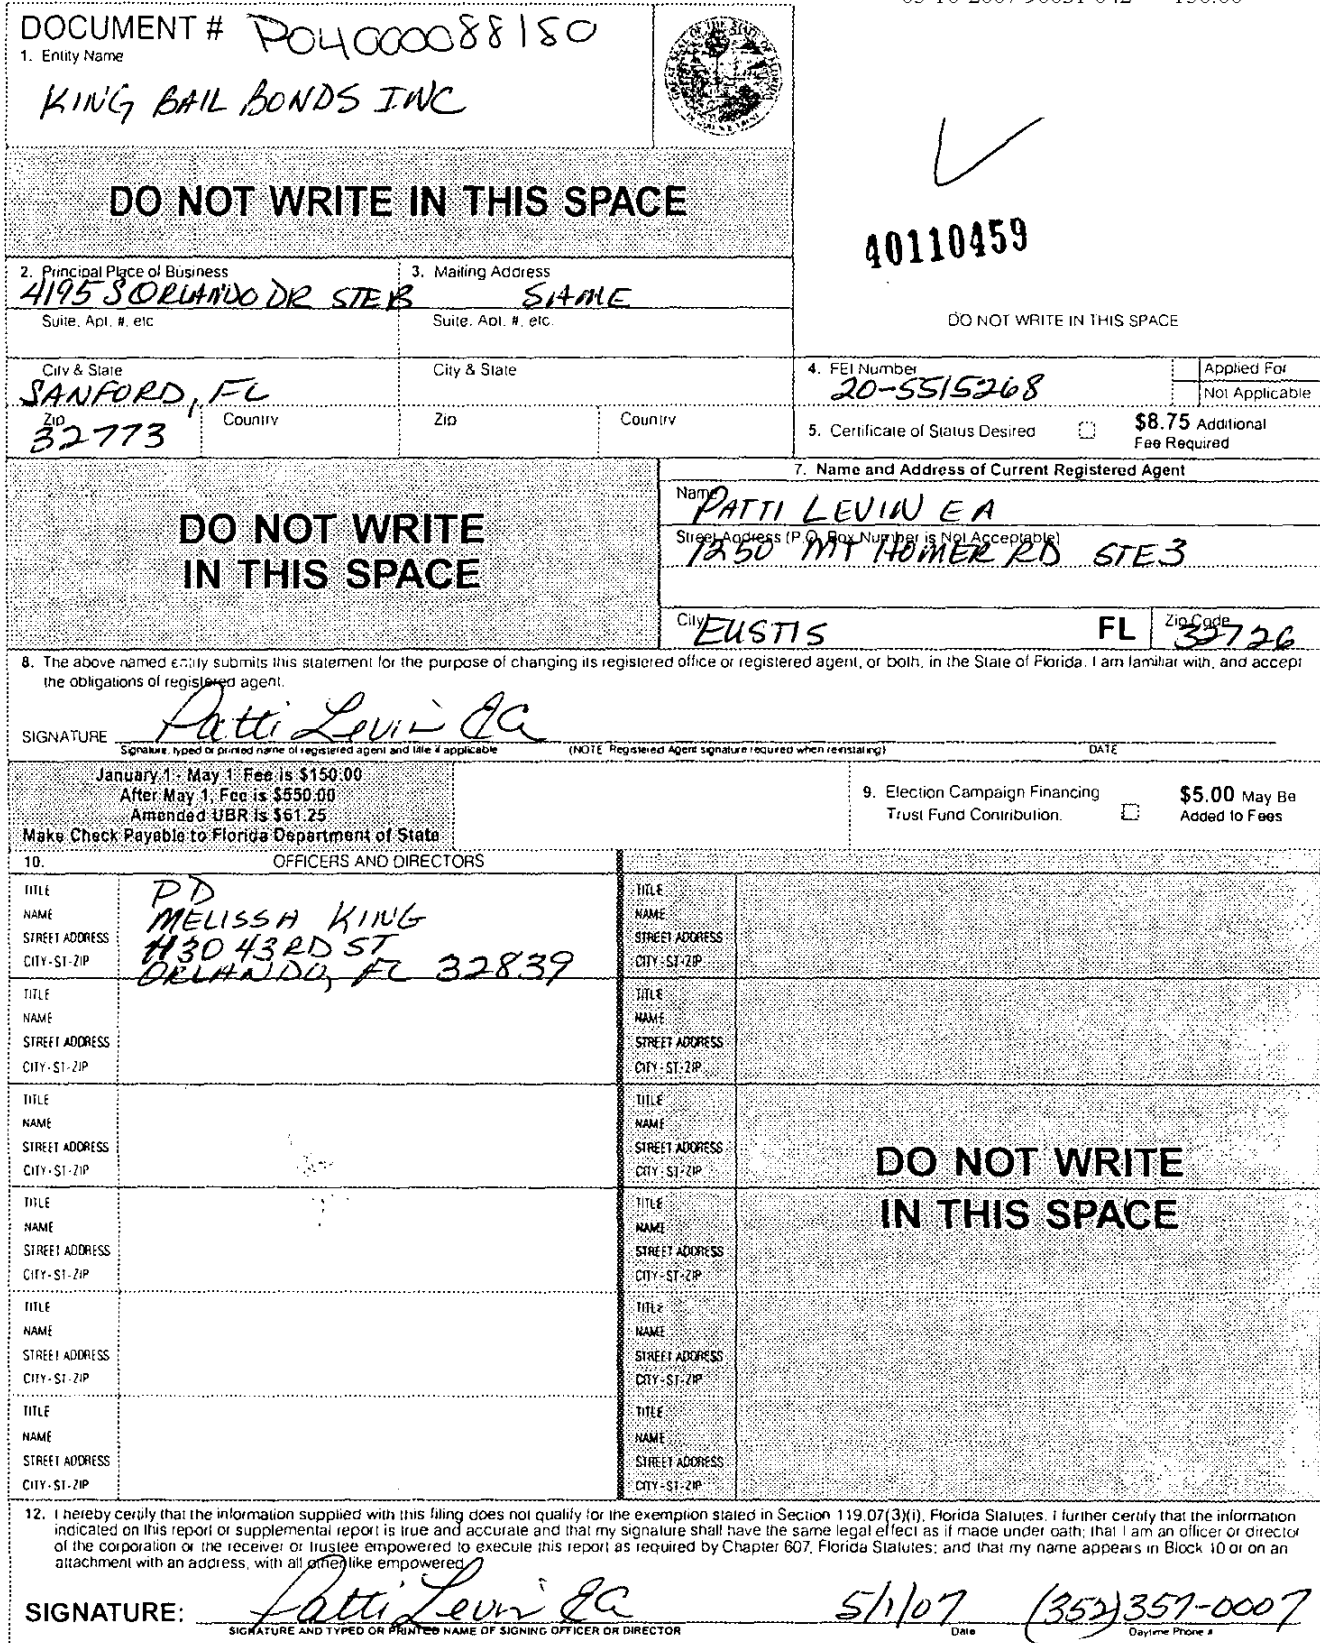 DOCUMENT # P04000088150
1. Entity Name
KING BAIL BONDS INC
DO NOT WRITE IN THIS SPACE
40110459
2. Principal Place of Business
4195 S ORLANDO DR STE B
3. Mailing Address
SAME
Suite, Apt. #, etc
Suite, Apt. #, etc.
DO NOT WRITE IN THIS SPACE
City & State
SANFORD, FL
City & State
4. FEI Number
20-5515268
Applied For
Not Applicable
Zip
32773
Country
Zip
Country
5. Certificate of Status Desired
$8.75 Additional
Fee Required
DO NOT WRITE
IN THIS SPACE
7. Name and Address of Current Registered Agent
Name
PATTI LEVIN EA
Street Address (P.O. Box Number is Not Acceptable)
1250 MT HOMER RD STE 3
City
EUSTIS
FL
Zip Code
32726
8. The above named entity submits this statement for the purpose of changing its registered office or registered agent, or both, in the State of Florida. I am familiar with, and accept
the obligations of registered agent.
SIGNATURE Patti Levin EA
Signature, typed or printed name of registered agent and title if applicable
(NOTE Registered Agent signature required when reinstating)
DATE
January 1 - May 1 Fee is $150.00
After May 1, Fee is $550.00
Amended UBR is $61.25
Make Check Payable to Florida Department of State
9. Election Campaign Financing
Trust Fund Contribution.
$5.00 May Be
Added to Fees
10. OFFICERS AND DIRECTORS
TITLE PD
NAME MELISSA KING
STREET ADDRESS 1130 43RD ST
CITY-ST-ZIP ORLANDO, FL 32839
TITLE
NAME
STREET ADDRESS
CITY-ST-ZIP
TITLE
NAME
STREET ADDRESS
CITY-ST-ZIP
TITLE
NAME
STREET ADDRESS
CITY-ST-ZIP
TITLE
NAME
STREET ADDRESS
CITY-ST-ZIP
TITLE
NAME
STREET ADDRESS
CITY-ST-ZIP
TITLE
NAME
STREET ADDRESS
CITY-ST-ZIP
TITLE
NAME
STREET ADDRESS
CITY-ST-ZIP
TITLE
NAME
STREET ADDRESS
CITY-ST-ZIP
TITLE
NAME
STREET ADDRESS
CITY-ST-ZIP
TITLE
NAME
STREET ADDRESS
CITY-ST-ZIP
TITLE
NAME
STREET ADDRESS
CITY-ST-ZIP
DO NOT WRITE
IN THIS SPACE
12. I hereby certify that the information supplied with this filing does not qualify for the exemption stated in Section 119.07(3)(i), Florida Statutes. I further certify that the information
indicated on this report or supplemental report is true and accurate and that my signature shall have the same legal effect as if made under oath; that I am an officer or director
of the corporation or the receiver or trustee empowered to execute this report as required by Chapter 607, Florida Statutes; and that my name appears in Block 10 or on an
attachment with an address, with all other like empowered.
SIGNATURE: Patti Levin EA 5/1/07 (352)357-0007
SIGNATURE AND TYPED OR PRINTED NAME OF SIGNING OFFICER OR DIRECTOR
Date
Daytime Phone #